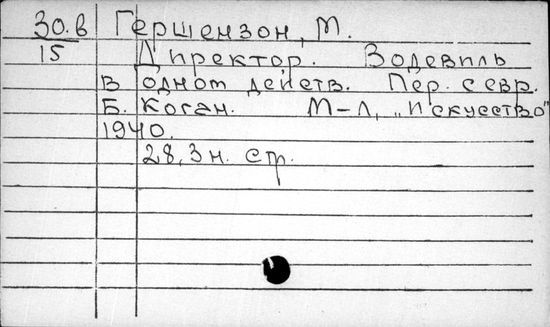 30.в Гершензон, М.
15 Директор. Водевиль
в одном действ. Пер. с евр.
Б. Коган. М-Л, "Искусство"
1940.
28, 3 н. стр.